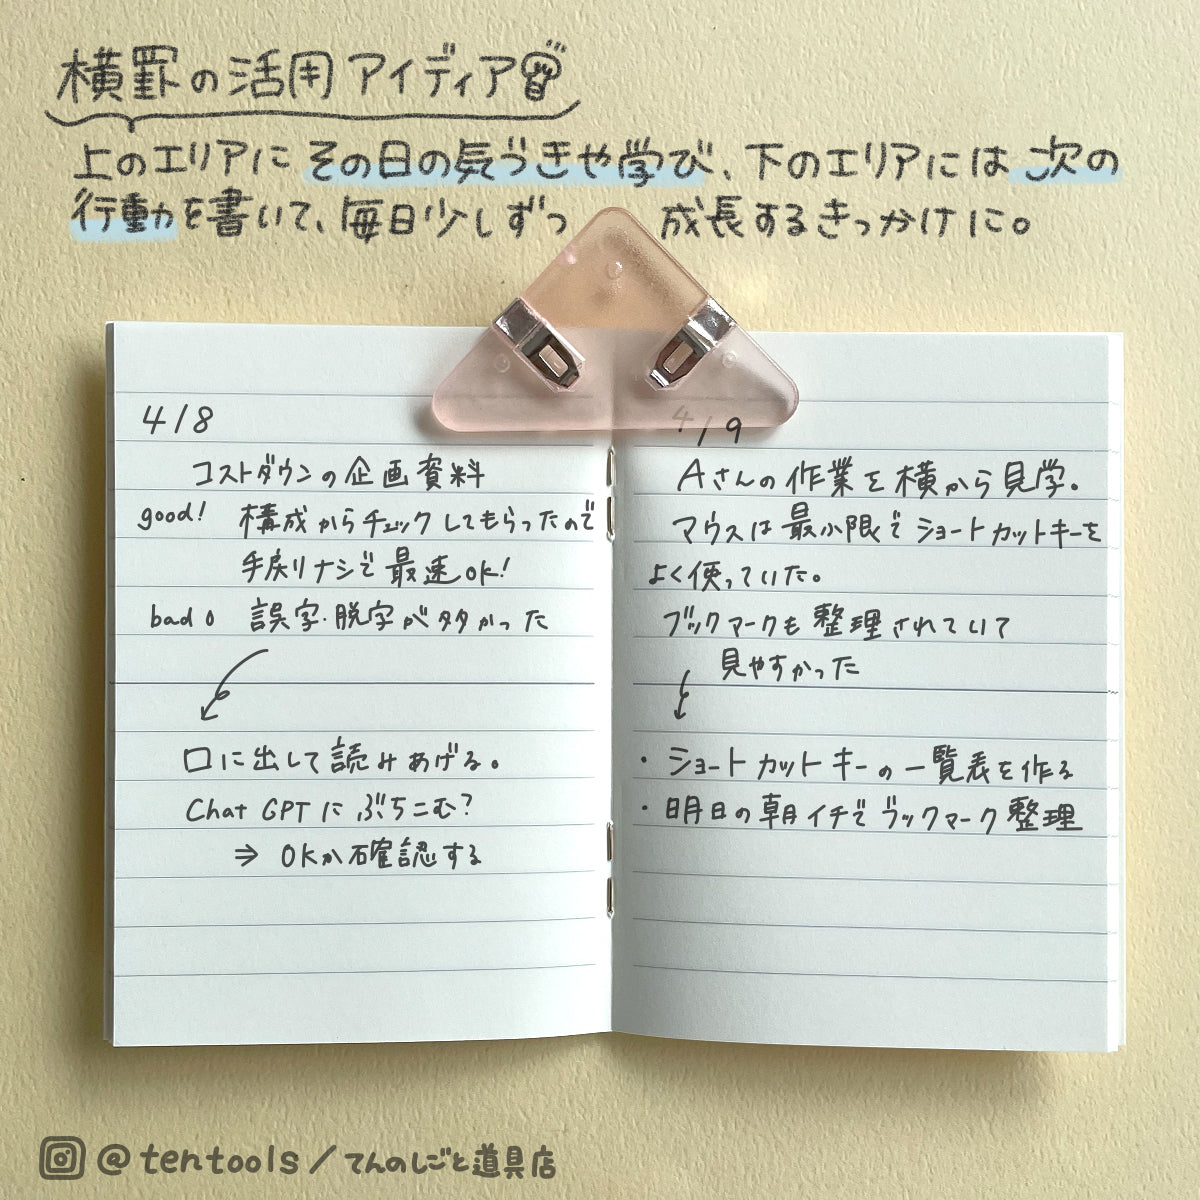 横罫の活用アイディア
上のエリアにその日の気づきや学び、下のエリアには次の
行動を書いて、毎日少しずつ 成長するきっかけに。
4/8
コストダウンの企画資料
good! 構成からチェックしてもらったので
手戻りナシで最速OK!
bad。 誤字・脱字が多かった
口に出して読みあげる。
Chat GPTにぶちこむ?
⇒ OKか確認する
4/9
Aさんの作業を横から見学。
マウスは最小限でショートカットキーを
よく使っていた。
ブックマークも整理されていて
見やすかった
・ショートカットキーの一覧表を作る
・明日の朝イチでブックマーク整理
@tentools/てんのしごと道具店